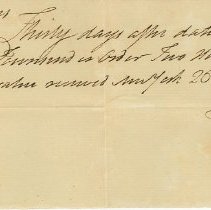 Thirty days after dat
Townsend or Order Two
value received New York 20